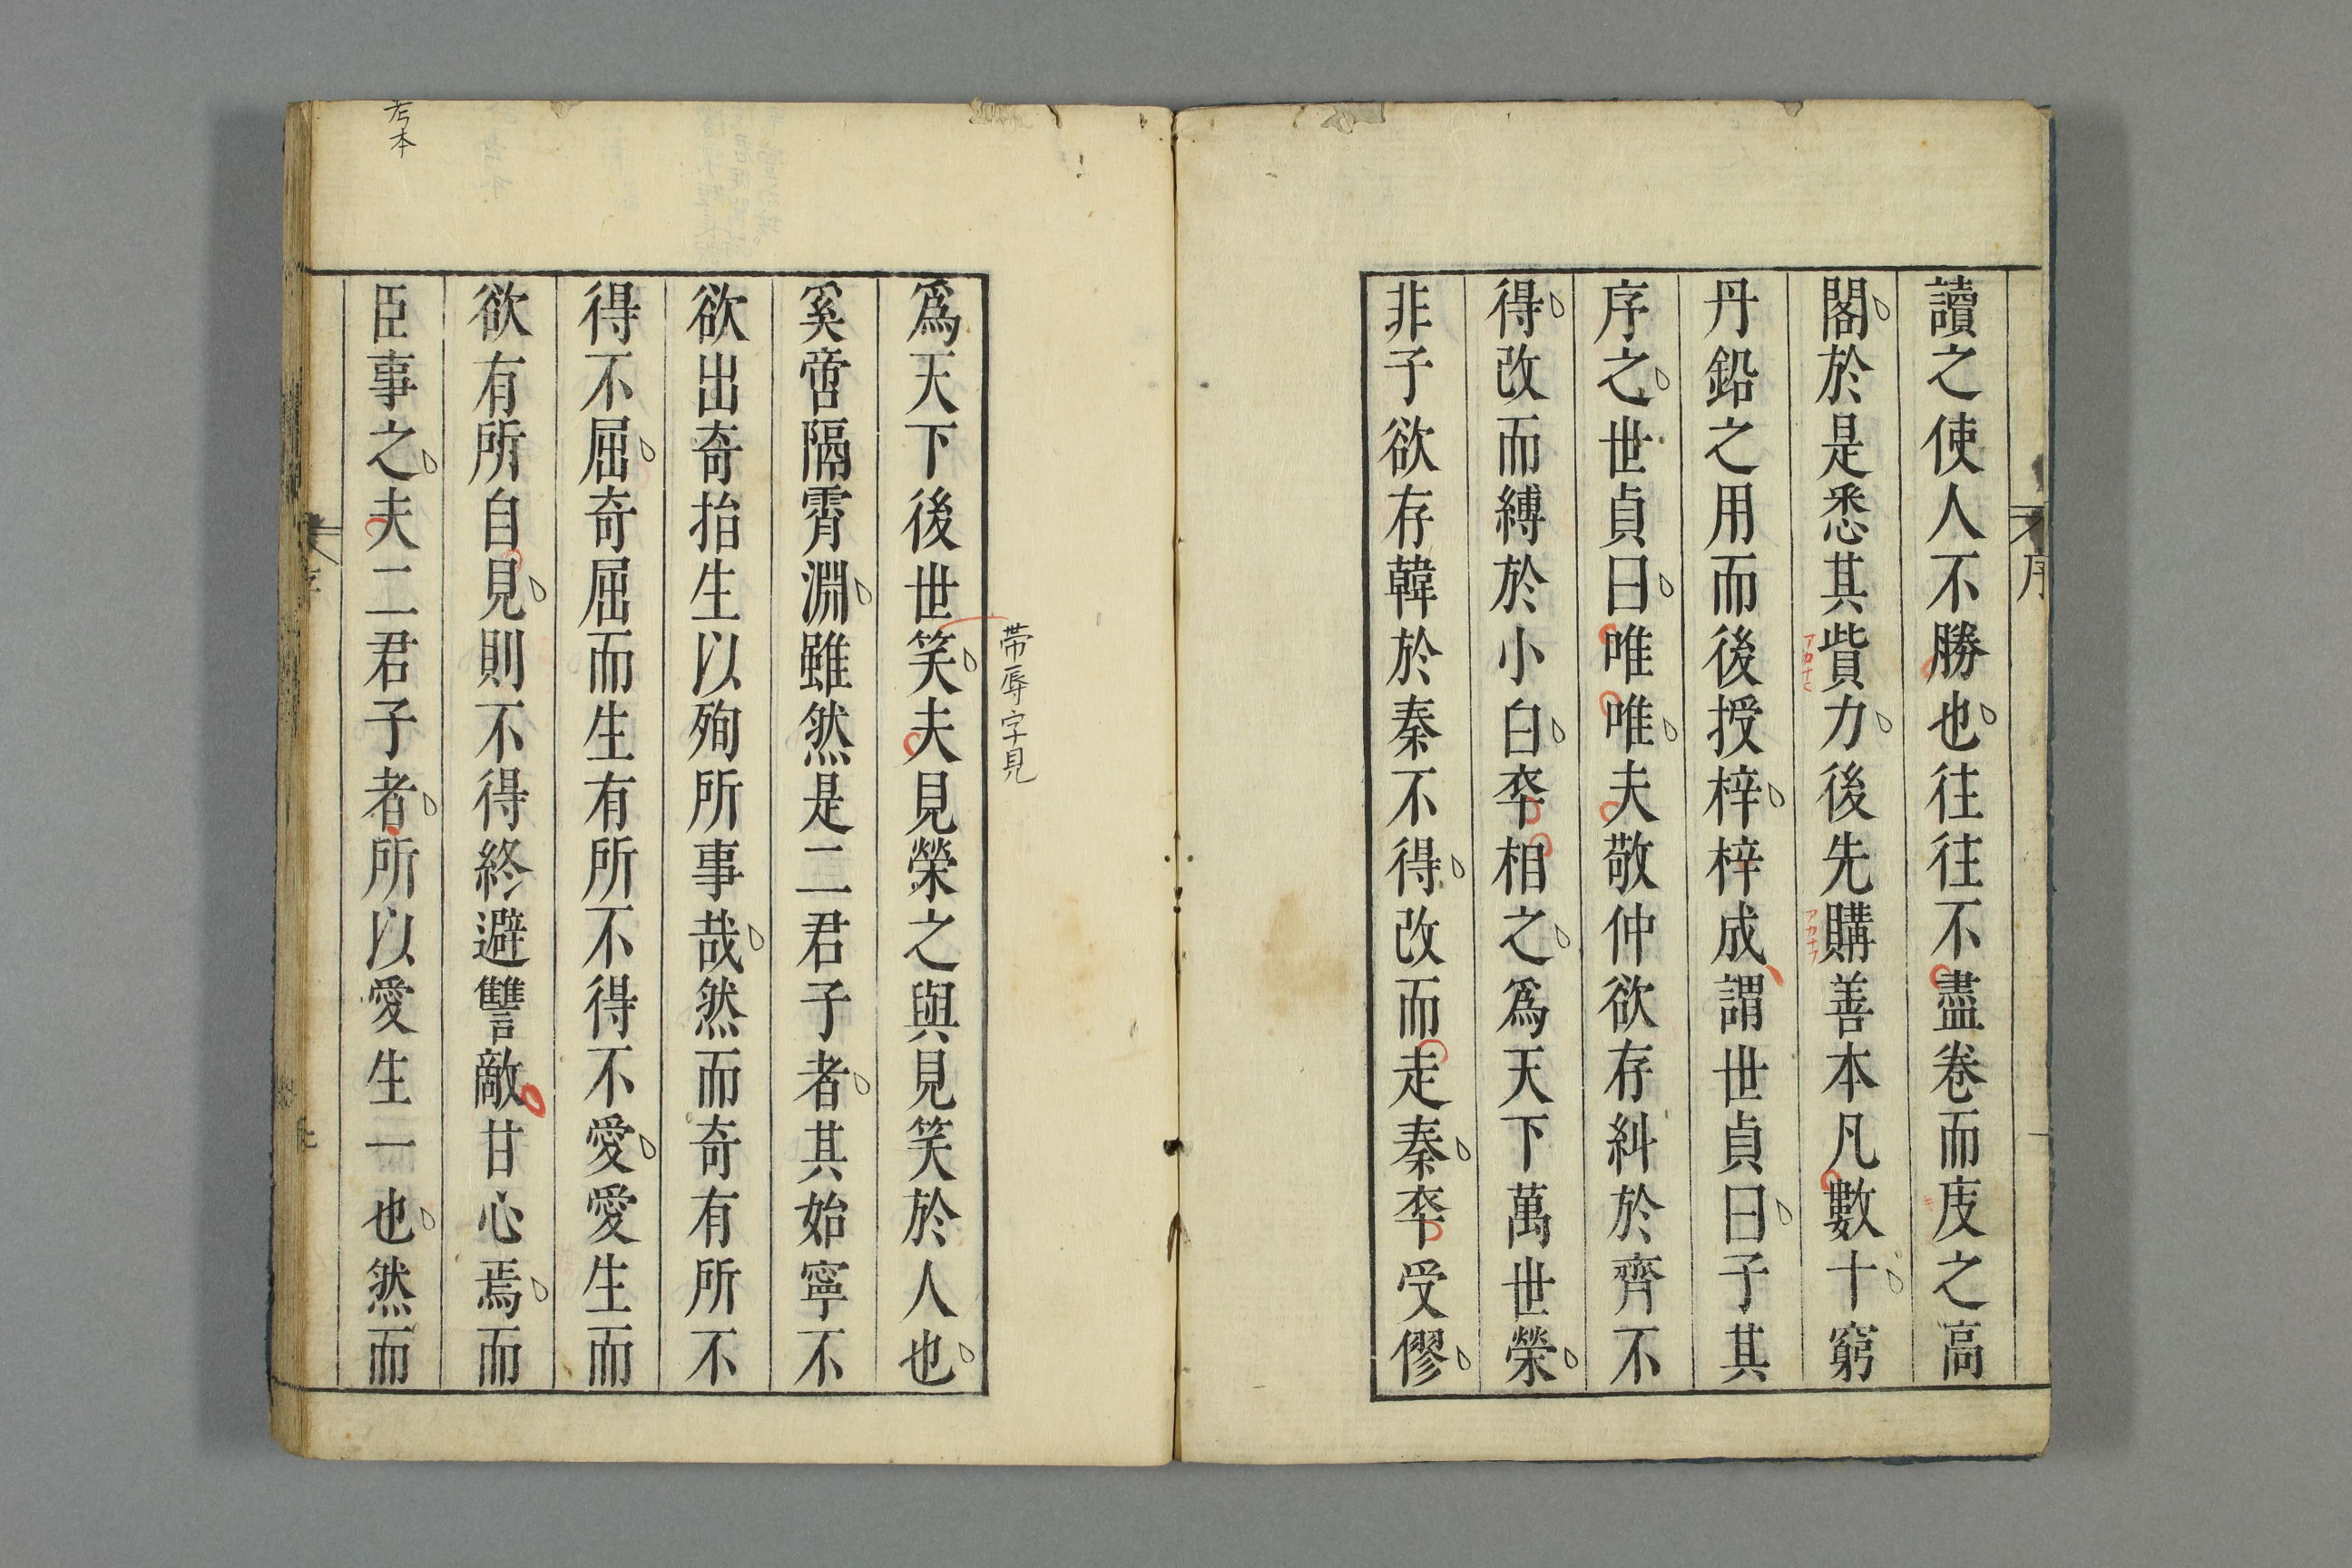 讀之使人不勝也往往不盡卷而庋之高
閣於是悉其貲力後先購善本凡數十窮
丹鉛之用而後授梓梓成謂世貞曰子其
序之世貞曰唯唯夫敬仲欲存糾於齊不
得改而縛於小白卒相之爲天下萬世榮
非子欲存韓於秦不得改而走秦卒受僇
爲天下後世笑夫見榮之與見笑於人也
奚啻隔霄淵雖然是二君子者其始寧不
欲出奇抬生以殉所事哉然而奇有所不
得不屈奇屈而生有所不得不愛愛生而
欲有所自見則不得終避讐敵甘心焉而
臣事之夫二君子者所以愛生一也然而
序
アカナヒ
アカナフ
帶辱字見
考本